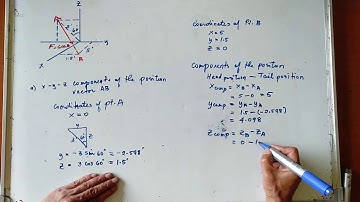 z
A
60°
3'
F, 600#
5'
B
1.5'
x
a) x-y-z components of the position
vector AB
Coordinates of pt. A
x = 0
y
z
60°
3'
y = -3 sin 60° = -2.598'
z = 3 cos 60° = 1.5'
Coordinates of Pt. B
x = 5
y = 1.5
z = 0
Components of the position
Head position - Tail position
xcomp = xB - xA
= 5 - 0 = 5
ycomp = yA - yA
= 1.5 - (-2.598)
= 4.098
zcomp = zB - zA
= 0 - 1